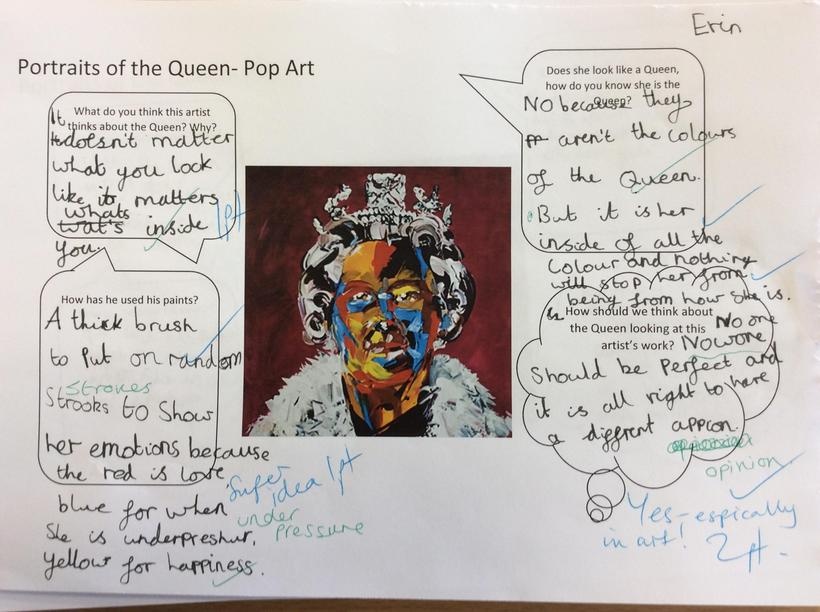 Erin
Portraits of the Queen- Pop Art
What do you think this artist
thinks about the Queen? Why?
It
doesn't matter
what you look
like it matters
whats
wat's inside
you.
1pt
Does she look like a Queen,
how do you know she is the
Queen?
No because they
aren't the colours
of the Queen.
But it is her
inside of all the
colour and nothing
will stop her from
being from how she is.
How has he used his paints?
A thick brush
to put on random
strokes
strooks to show
her emotions because
the red is love
blue for when
she is underpreshur,
yellow for happiness.
Super
idea 1pt
under
pressure
How should we think about
the Queen looking at this
artist's work?
No one
Nowone
should be perfect and
it is all right to have
a diffrent appion.
opinion
Yes - espically
in art!
2pt.